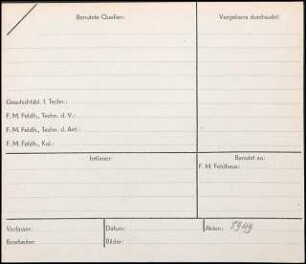 Benutzte Quellen:
Vergebens durchsucht:
Geschichtsbl. f. Techn.:
F. M. Feldh., Techn. d. V.:
F. M. Feldh., Techn. d. Ant.:
F. M. Feldh., Kal.:
Irrtümer:
Benutzt zu:
F. M. Feldhaus:
Verfasser:
Datum:
Akten: 8949
Bearbeiter:
Bilder: